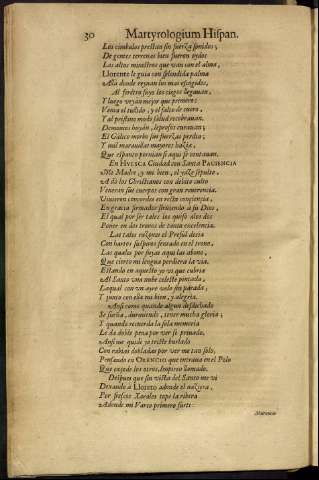 30 Martyrologium Hispan.
Los cimbalos prestan sin fuerza sonidos;
De gentes terrenas bien fueron oydos
Las altos ministros que van con el alma,
Llorente le guia con splendida palma
Alla donde reynan los mas escogidos.
Al feretro suyo los ciegos llegauan,
Y luego veyan mejor que primero:
Venia el tullido, y el falto de cuero,
Y al pristino modo salud recobrauan.
Demonios huyan, leprosos curauan;
El Galico morbo sus fuerzas perdio;
Y mil marauillas mayores hazia,
Que espanto pornian si aqui se contauan.
En HVESCA Ciudad con Santa PACIENCIA
Mi Madre, y mi bien, el yaze sepulto
A do los Christianos con deuido culto
Veneran sus cuerpos con gran reuerencia.
Viuieron concordes en recta conciencia,
En gracia formados siruiendo à su Dios;
El qual por ser tales los quiso a los dos
Poner en dos tronos de tanta excelencia.
Las tales razones el Presul decia
Con hartos suspiros sentado en el trono,
Las quales por suyas aqui las abono,
Que cierto mi lengua perdiera la via.
Estando en aquesto yo vi que cubria
Al Santo vna nube celeste pintada,
Laqual con vn ayre volo sin parada;
Y junto con ella mi bien, y alegria.
Ansi como quando algun desdichado
Se sueña, durmiendo, tener mucha gloria;
Y quando recuerda la sola memoria
Le da doble pena por ver se priuado.
Ansi me quede yo triste burlado
Con rabias dobladas por ver me tan solo,
Pensando en ORENCIO que entraua en el Polo
Que excede los otros, Empireo llamado.
Despues que sin vista del Santo me vi
Dexando à Lloreto adonde el naziera,
Por frescos Xarales tope la ribera
Adonde mi Varco primero surti: